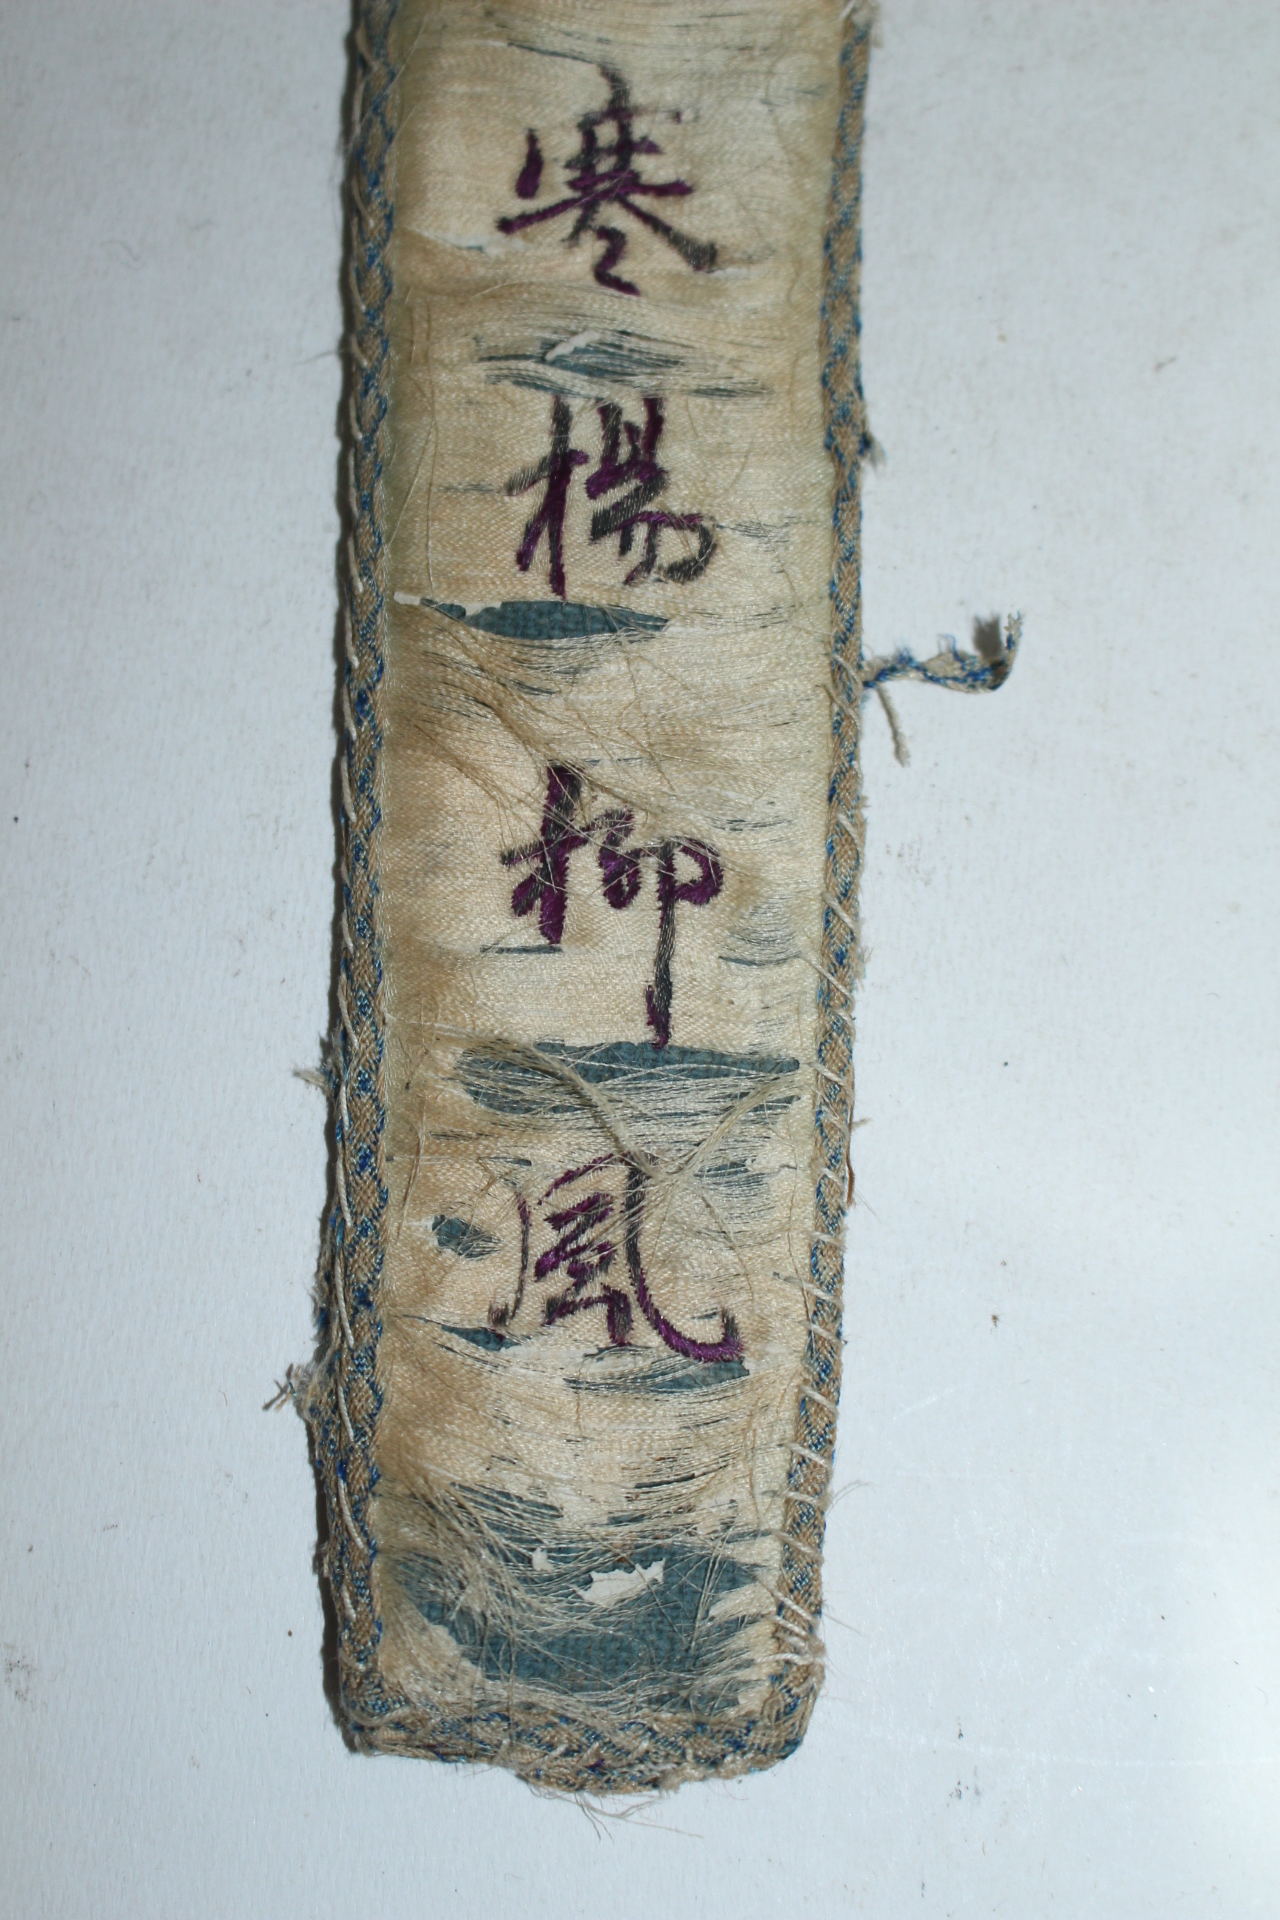 寒楊柳風